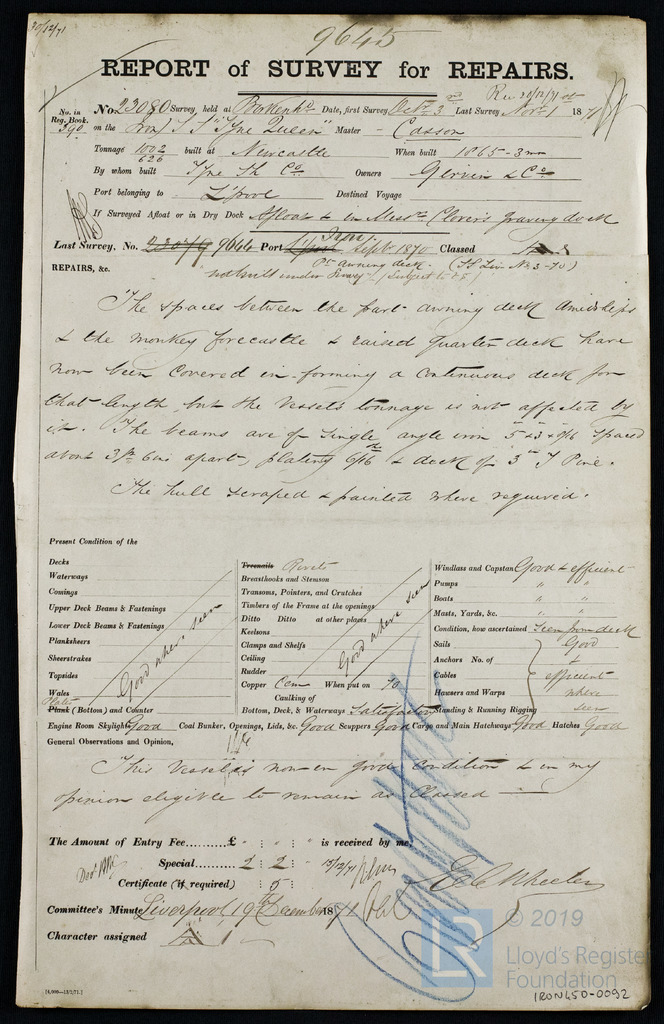 30/12/71
9645
REPORT of SURVEY for REPAIRS.
Rec 30/12/71
No. in Reg. Book. 390
No. 23080 Survey held at Birkenhd. Date, first Survey Octr. 3rd Last Survey Novr. 1st 1871
on the Iron S S "Tyne Queen" Master Casson
Tonnage 1002 / 626 built at Newcastle When built 1865-3mo
By whom built Tyne Sh Co. Owners Girvin & Co.
Port belonging to L'pool Destined Voyage
If Surveyed Afloat or in Dry Dock Afloat & in Messrs. Clover's graving dock
Last Survey, No. 9644 Port Septr. 1870 Classed
Pt. awning deck (SS Liv. No. 3-70)
REPAIRS, &c. not built under Survey (Subject to
The spaces between the part awning deck amidships
& the monkey forecastle & raised quarter deck have
now been covered in forming a continuous deck for
that length, but the vessel's tonnage is not affected by
it. The beams are of single angle iron 5 x 3 x 6/16 spaced
about 3 ft 6 ins apart, plating 6/16 & deck of 3in Y Pine.
The hull scraped & painted where required.
Present Condition of the
Decks
Waterways
Comings
Upper Deck Beams & Fastenings
Lower Deck Beams & Fastenings
Plankshears
Sheerstrakes
Topsides
Wales
Good where seen
Plates
Plank (Bottom) and Counter
Treenails Rivets
Breasthooks and Stemson
Transoms, Pointers, and Crutches
Timbers of the Frame at the openings
Ditto Ditto at other places
Keelsons
Clamps and Shelfs
Ceiling
Rudder
Good where seen
Copper Cem When put on 70
Caulking of
Bottom, Deck, & Waterways Satisfactory
Windlass and Capstan Good & efficient
Pumps " "
Boats " "
Masts, Yards, &c. " "
Condition, how ascertained Seen from deck
Sails Good
Anchors No. of
Cables efficient
Hawsers and Warps where
Standing & Running Rigging seen
Engine Room Skylights Good Coal Bunker, Openings, Lids, &c. Good Scuppers Good Cargo and Main Hatchways Good Hatches Good
General Observations and Opinion,
This vessel is now in good condition & in my
opinion eligible to remain as Classed
The Amount of Entry Fee......... £ " : " : " is received by me,
Special...... 2 : 2 : " 15/12/71
Certificate (if required) : 5 :
E C Wheeler
Committee's Minute Liverpool, 19th December 1871
Character assigned A 1
[4,000—13/2/71.]
LR
© 2019
Lloyd's Register
Foundation
IRON450-0092